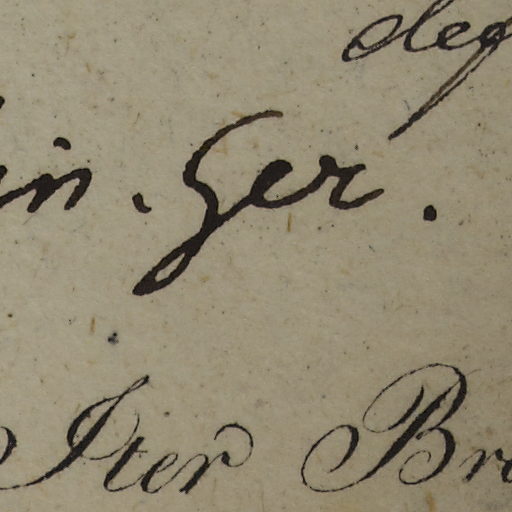 in. Ger.
Iter Br